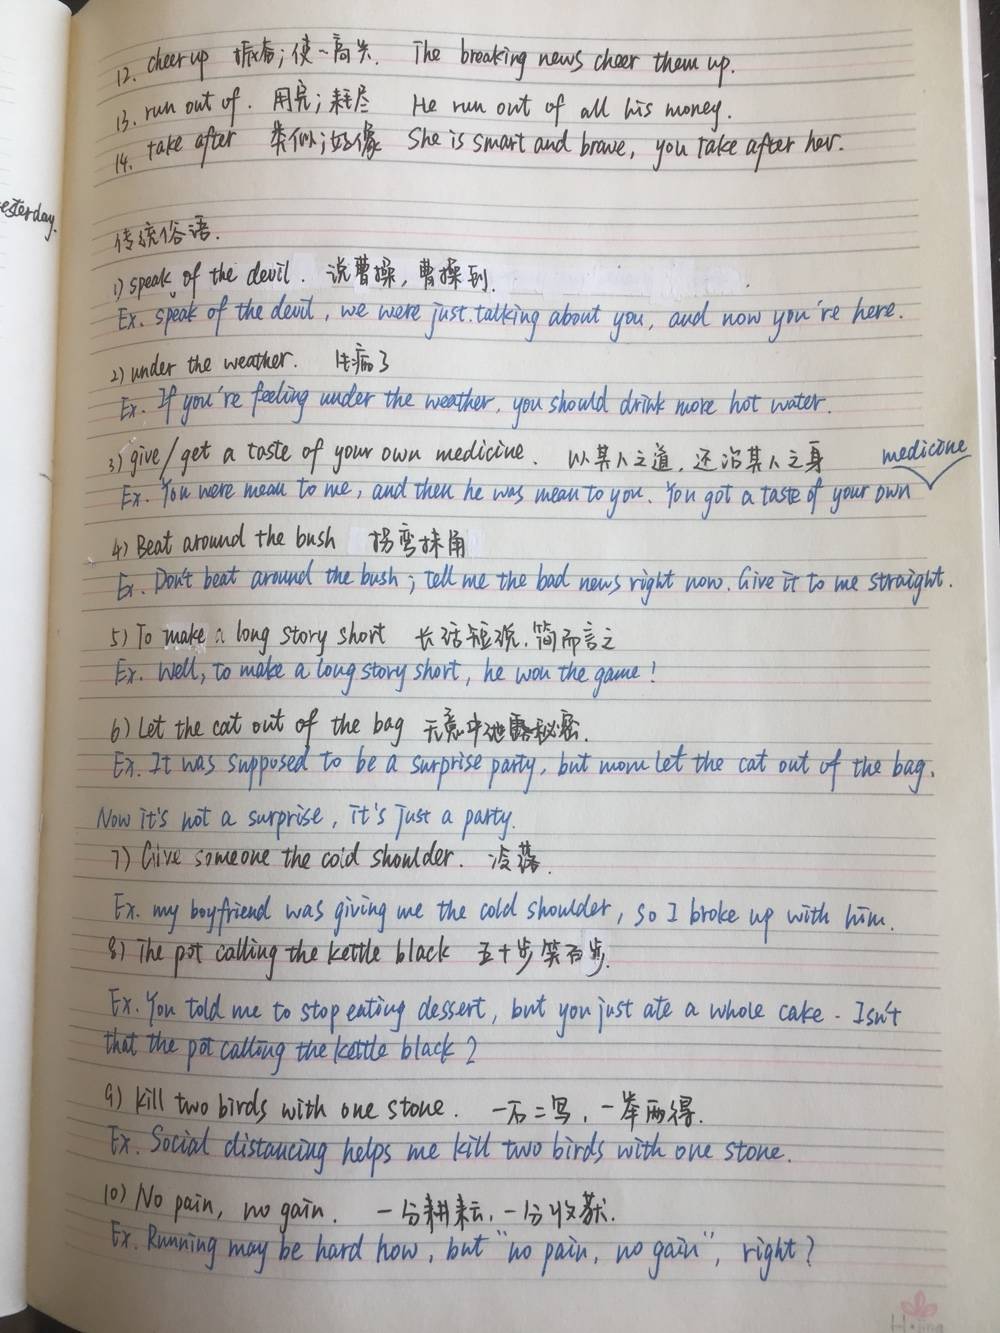 12. cheer up 振奋；使~高兴. The breaking news cheer them up.
13. run out of. 用完；耗尽 He run out of all his money.
14. take after 类似；好像 She is smart and brave, you take after her.
esterday.
传统俗语.
1) speak of the devil. 说曹操，曹操到.
Ex. speak of the devil, we were just talking about you, and now you're here.
2) under the weather. 生病了
Ex. If you're feeling under the weather, you should drink more hot water.
3) give/get a taste of your own medicine. 以其人之道，还治其人之身
medicine
Ex. You were mean to me, and then he was mean to you. You got a taste of your own
4) Beat around the bush 拐弯抹角
Ex. Don't beat around the bush; tell me the bad news right now. Give it to me straight.
5) To make a long story short 长话短说，简而言之
Ex. Well, to make a long story short, he won the game!
6) Let the cat out of the bag 无意中泄露秘密.
Ex. It was supposed to be a surprise party, but mom let the cat out of the bag.
Now it's not a surprise, it's just a party.
7) Give someone the cold shoulder. 冷落.
Ex. my boyfriend was giving me the cold shoulder, so I broke up with him.
8) The pot calling the kettle black 五十步笑百步.
Ex. You told me to stop eating dessert, but you just ate a whole cake. Isn't
that the pot calling the kettle black?
9) kill two birds with one stone. 一石二鸟，一举两得.
Ex. Social distancing helps me kill two birds with one stone.
10) No pain, no gain. 一分耕耘，一分收获.
Ex. Running may be hard now, but "no pain, no gain", right?